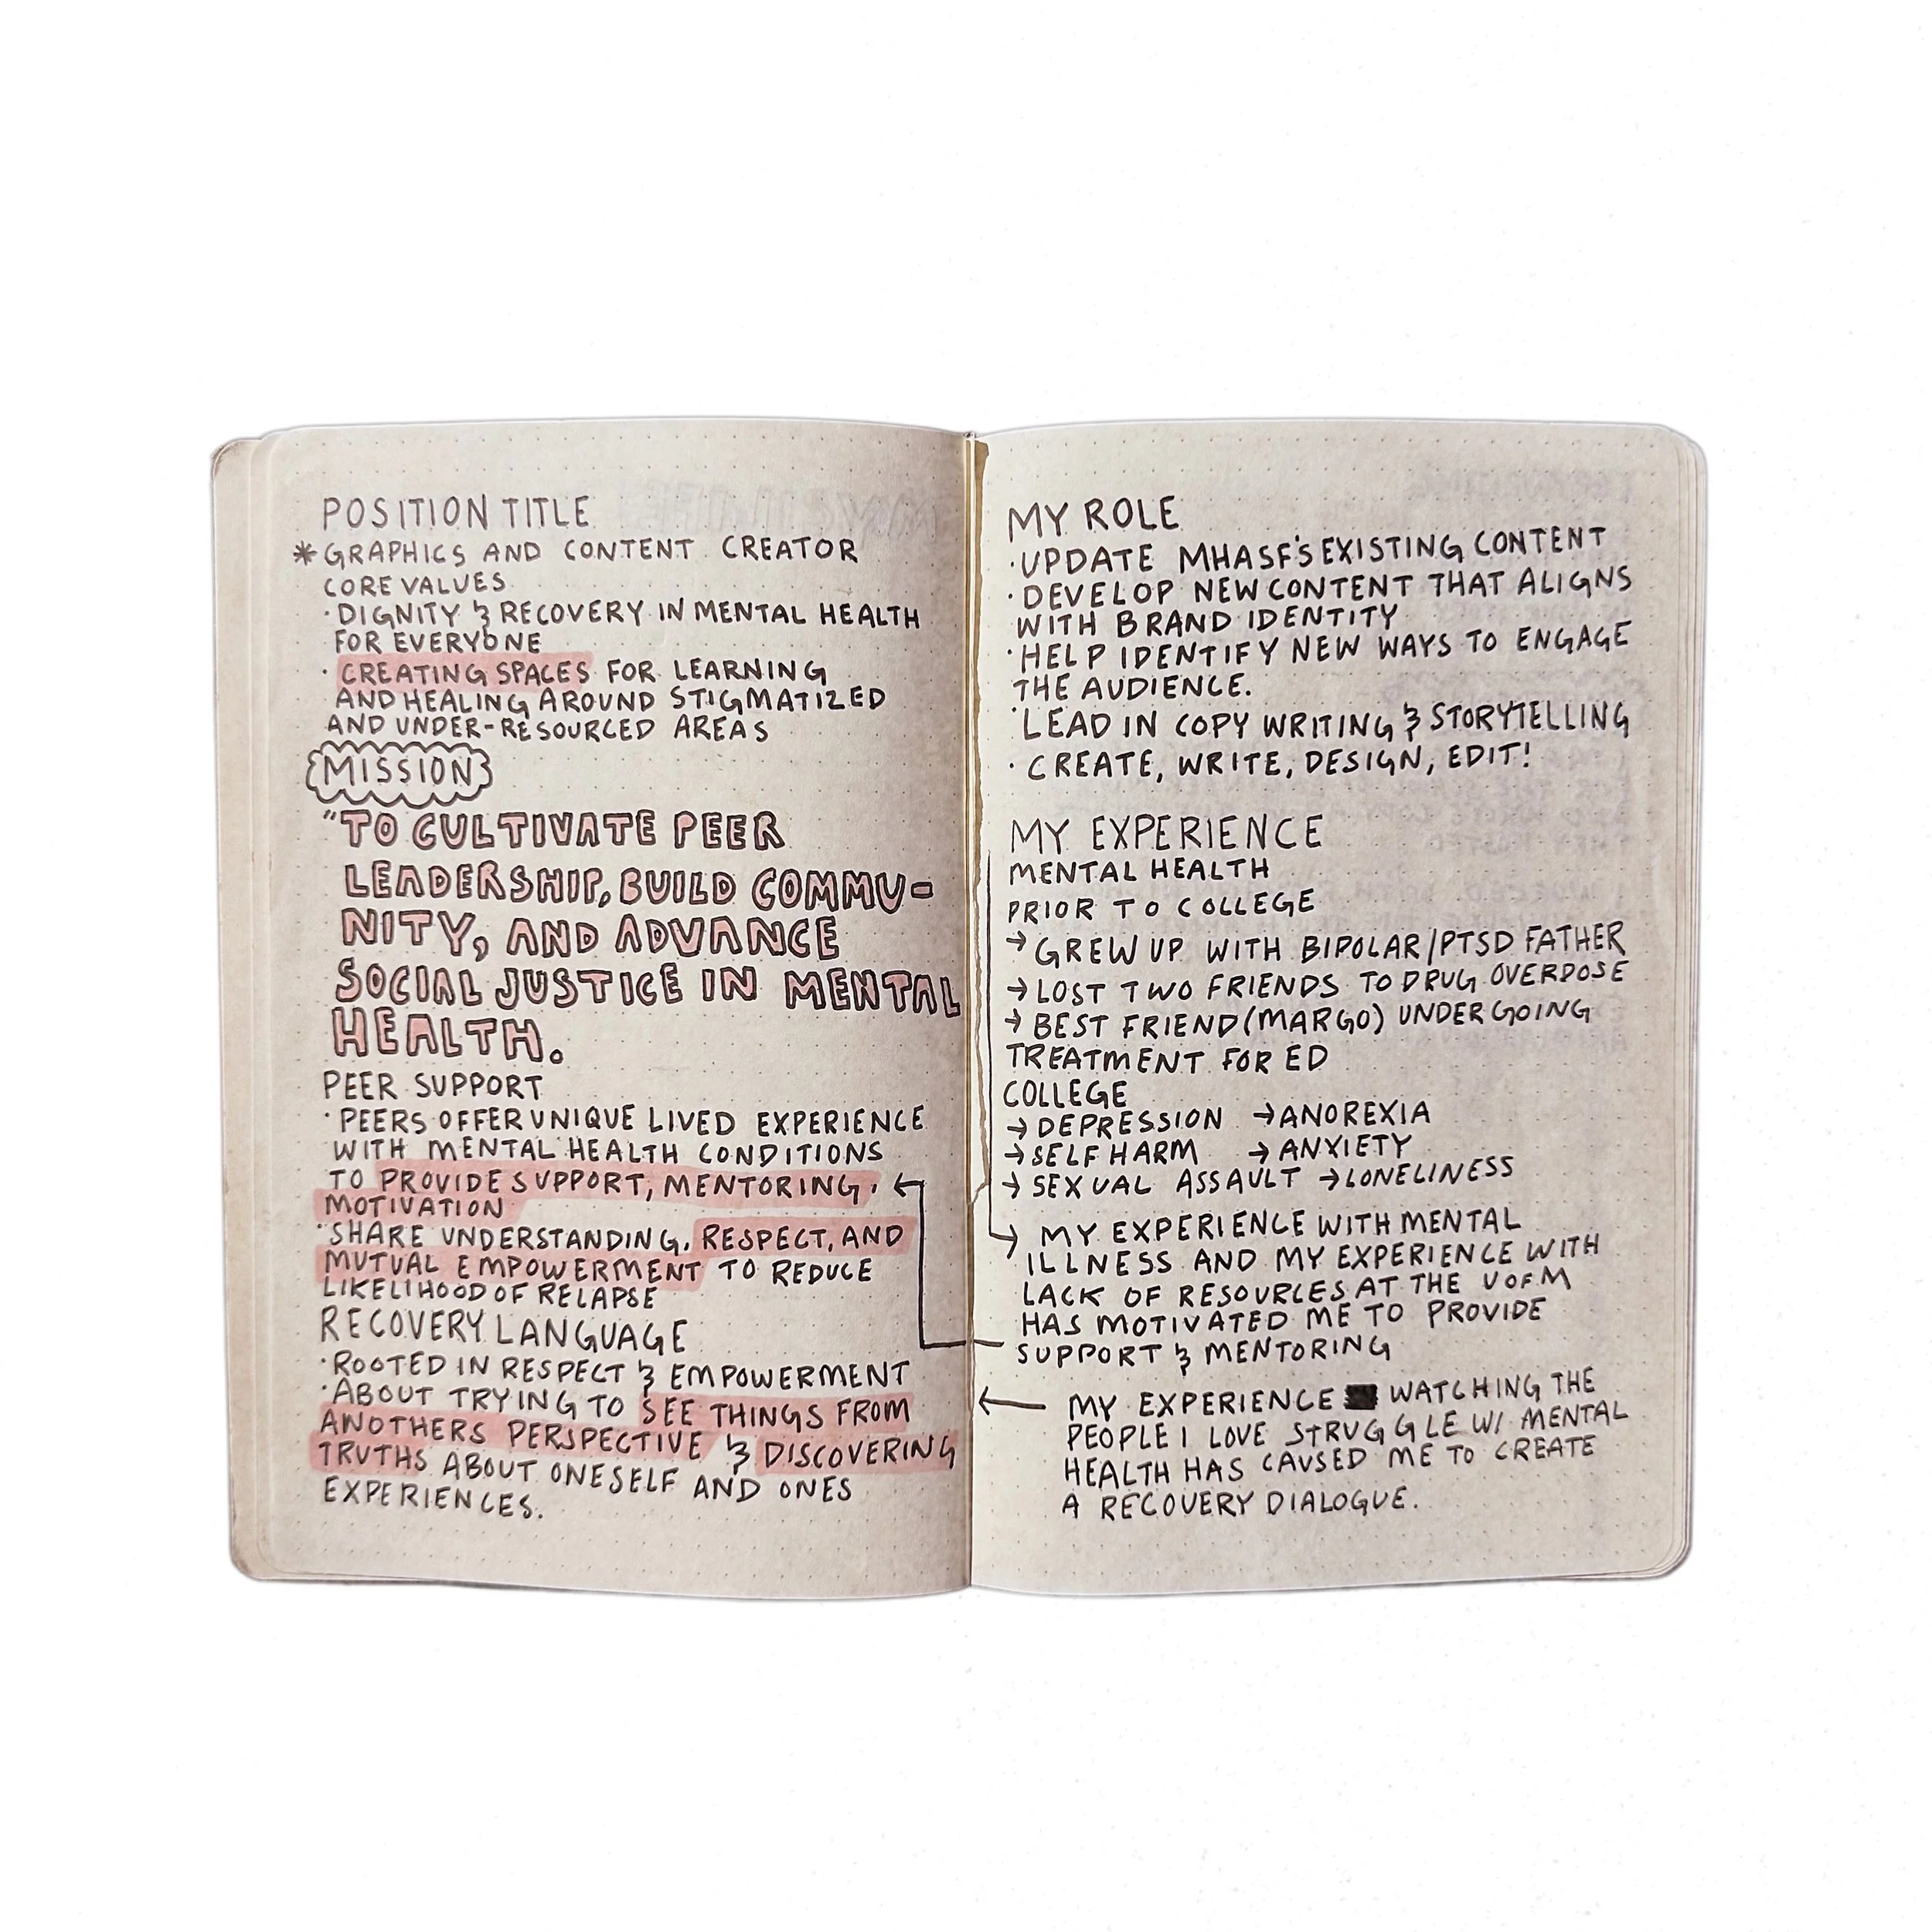 POSITION TITLE
*GRAPHICS AND CONTENT CREATOR
CORE VALUES
·DIGNITY & RECOVERY IN MENTAL HEALTH
FOR EVERYONE
·CREATING SPACES FOR LEARNING
AND HEALING AROUND STIGMATIZED
AND UNDER-RESOURCED AREAS
MISSION
"TO CULTIVATE PEER
LEADERSHIP, BUILD COMMU-
NITY, AND ADVANCE
SOCIAL JUSTICE IN MENTAL
HEALTH.
PEER SUPPORT
·PEERS OFFER UNIQUE LIVED EXPERIENCE
WITH MENTAL HEALTH CONDITIONS
TO PROVIDE SUPPORT, MENTORING,
MOTIVATION
·SHARE UNDERSTANDING, RESPECT, AND
MUTUAL EMPOWERMENT TO REDUCE
LIKELIHOOD OF RELAPSE
RECOVERY LANGUAGE
·ROOTED IN RESPECT & EMPOWERMENT
·ABOUT TRYING TO SEE THINGS FROM
ANOTHERS PERSPECTIVE & DISCOVERING
TRUTHS ABOUT ONESELF AND ONES
EXPERIENCES.
MY ROLE
·UPDATE MHASF'S EXISTING CONTENT
·DEVELOP NEW CONTENT THAT ALIGNS
WITH BRAND IDENTITY
·HELP IDENTIFY NEW WAYS TO ENGAGE
THE AUDIENCE.
·LEAD IN COPY WRITING & STORYTELLING
·CREATE, WRITE, DESIGN, EDIT!
MY EXPERIENCE
MENTAL HEALTH
PRIOR TO COLLEGE
→GREW UP WITH BIPOLAR/PTSD FATHER
→LOST TWO FRIENDS TO DRUG OVERDOSE
→BEST FRIEND (MARGO) UNDERGOING
TREATMENT FOR ED
COLLEGE
→DEPRESSION →ANOREXIA
→SELF HARM →ANXIETY
→SEXUAL ASSAULT →LONELINESS
MY EXPERIENCE WITH MENTAL
ILLNESS AND MY EXPERIENCE WITH
LACK OF RESOURCES AT THE U OF M
HAS MOTIVATED ME TO PROVIDE
SUPPORT & MENTORING
MY EXPERIENCE WATCHING THE
PEOPLE I LOVE STRUGGLE W/ MENTAL
HEALTH HAS CAUSED ME TO CREATE
A RECOVERY DIALOGUE.